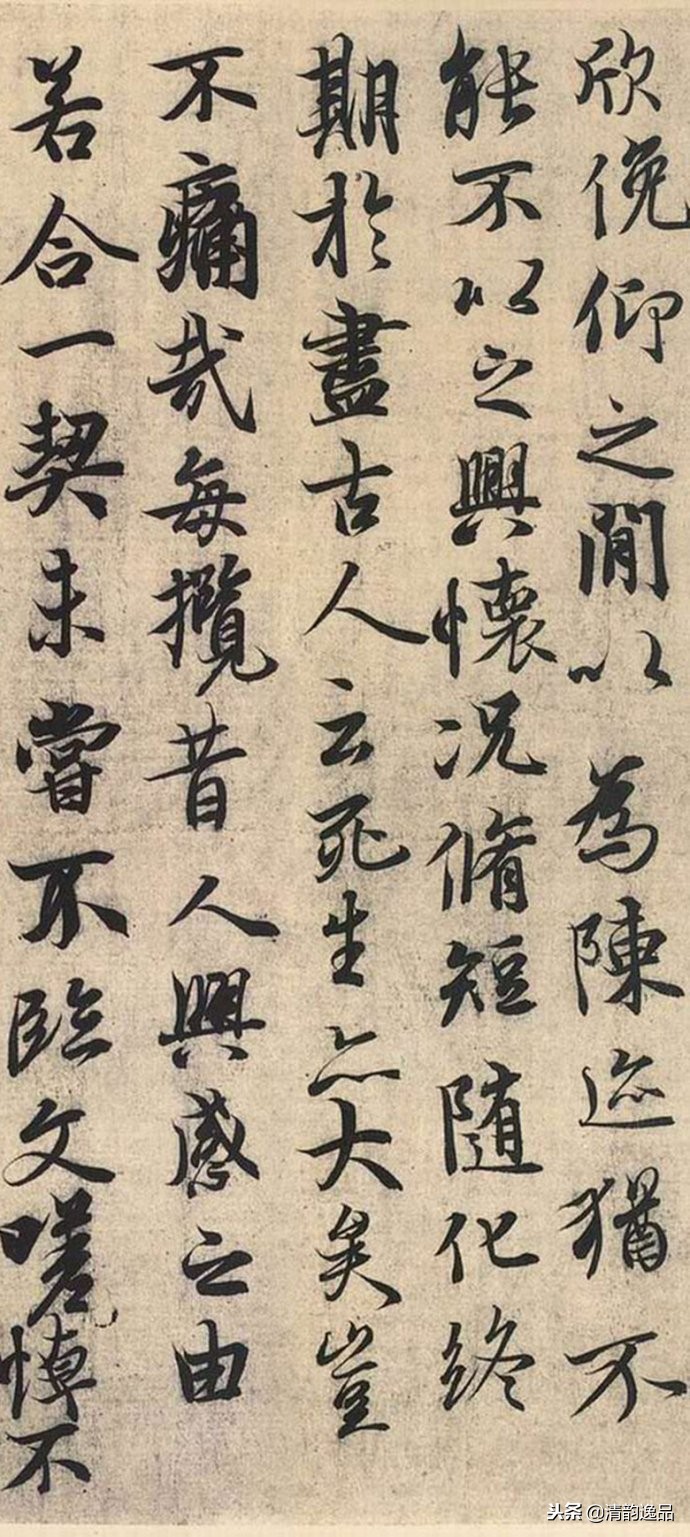 欣俛仰之閒以為陳迹猶不
能不以之興懷况脩短隨化終
期於盡古人云死生亦大矣豈
不痛哉每攬昔人興感之由
若合一契未嘗不臨文嗟悼不
头条 @清韵逸品